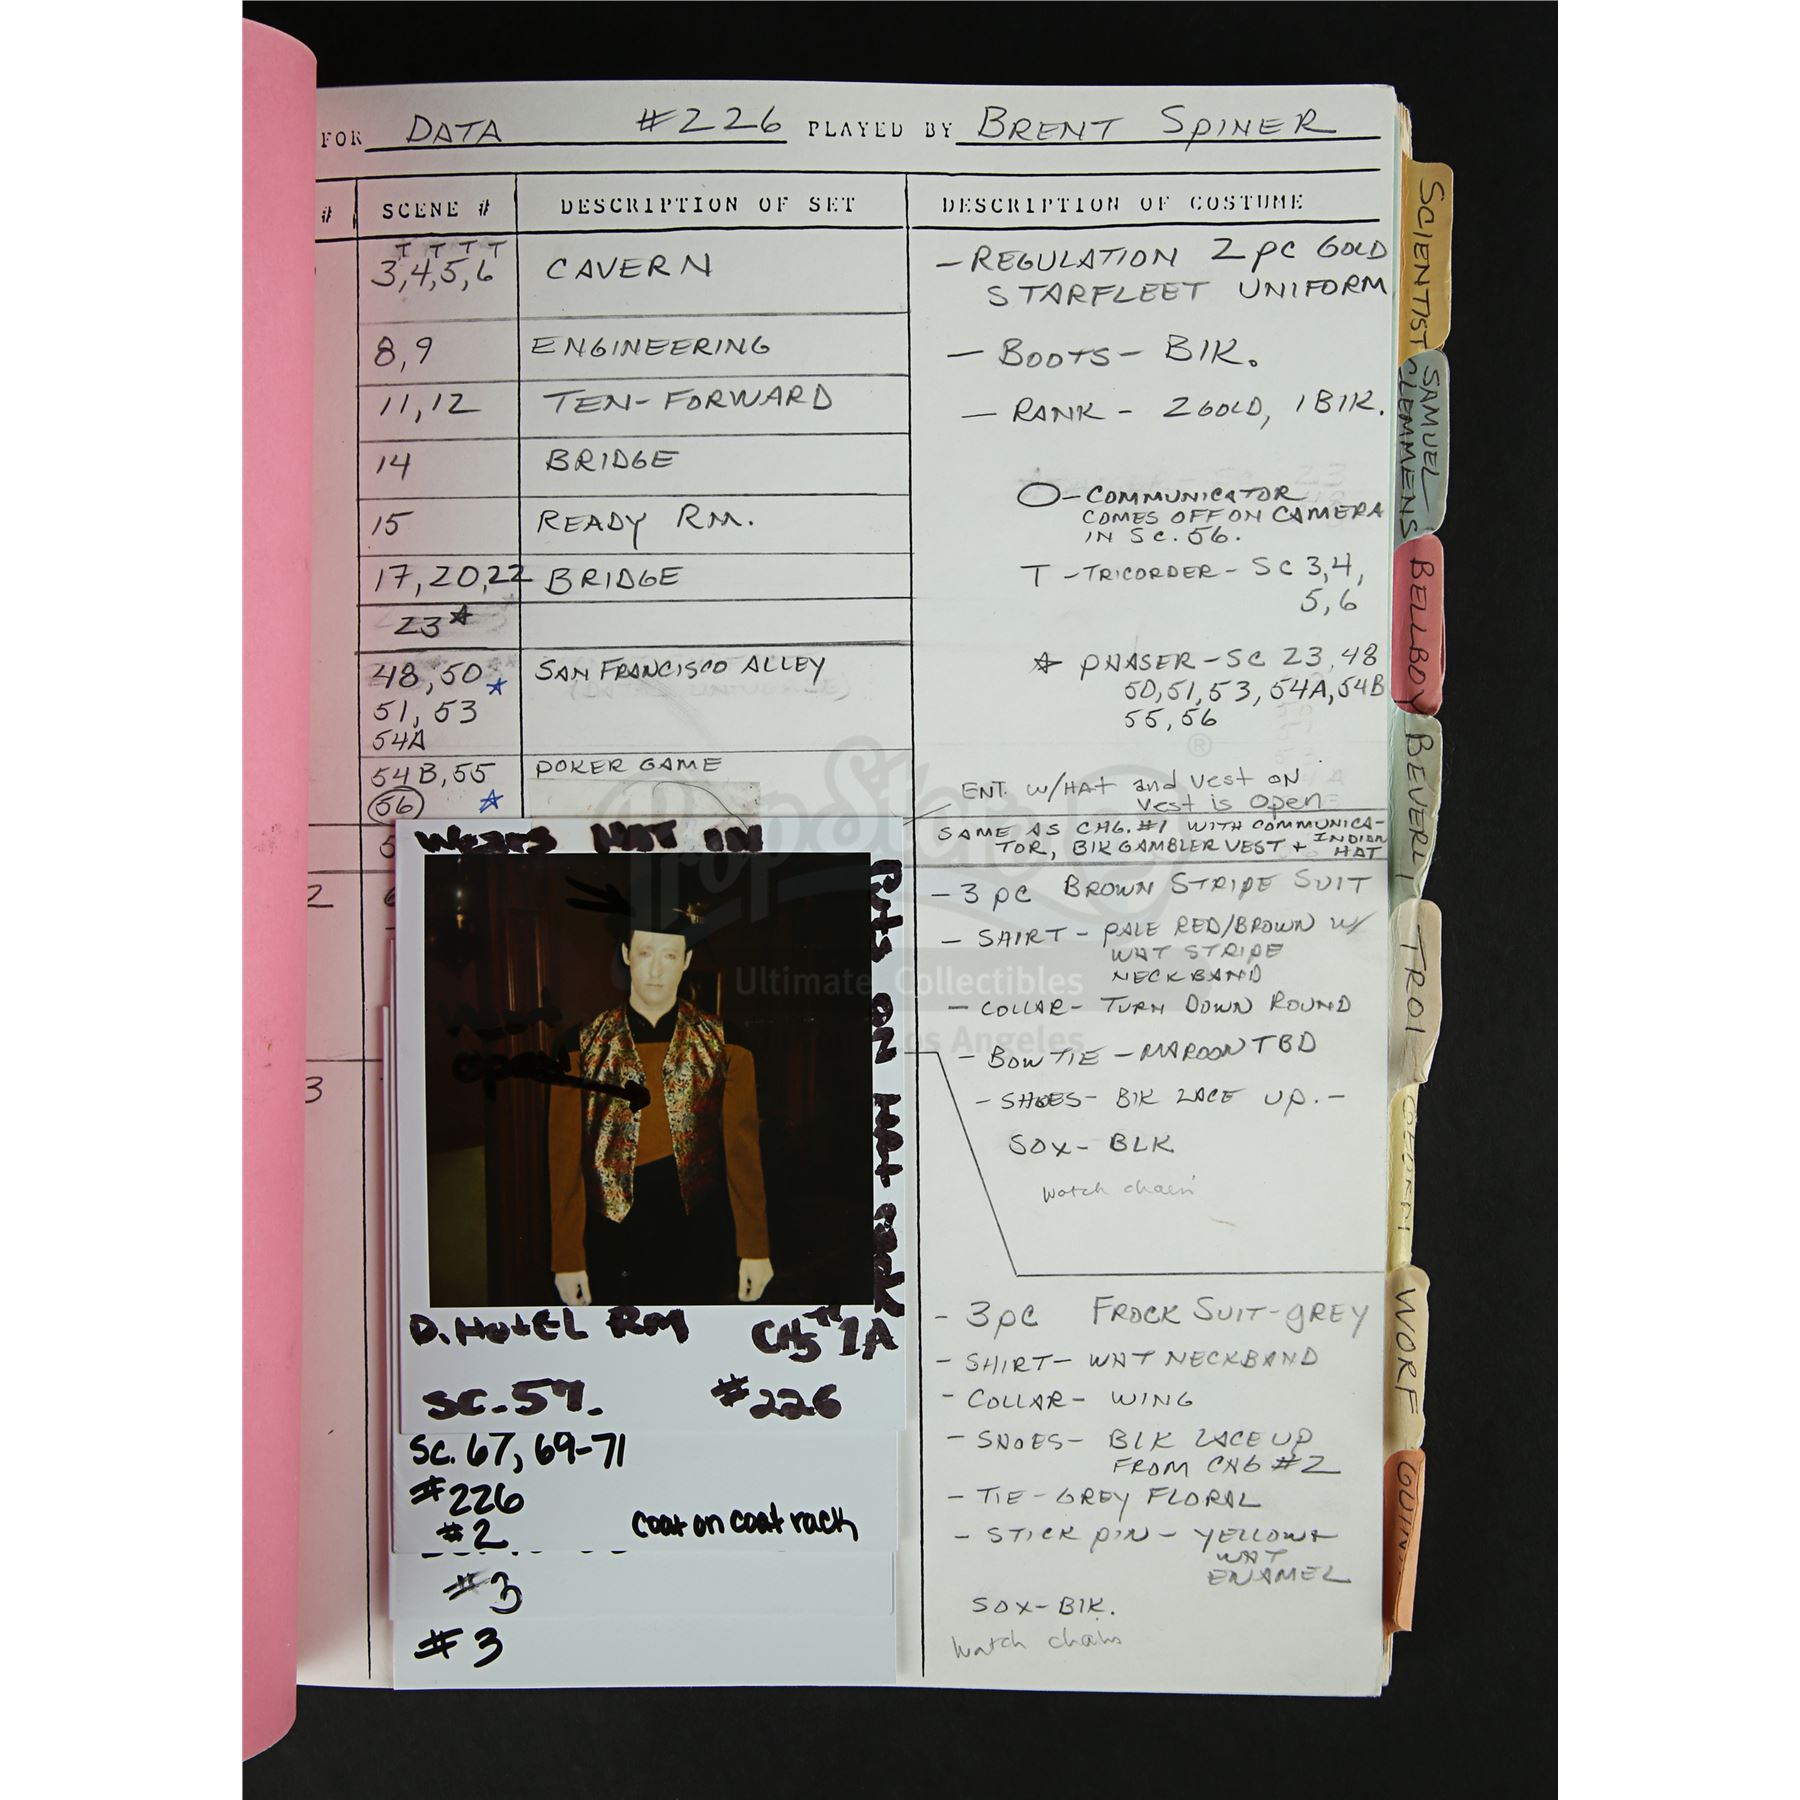 FOR DATA #226 PLAYED BY BRENT SPINER
# SCENE # DESCRIPTION OF SET DESCRIPTION OF COSTUME
T T T T
3,4,5,6 CAVERN
8,9 ENGINEERING
11,12 TEN-FORWARD
14 BRIDGE
15 READY RM.
17,20,22 BRIDGE
23*
48,50 SAN FRANCISCO ALLEY
51, 53 *
54A
54B,55 POKER GAME
56 *
5
2
3
- REGULATION 2 PC GOLD
STARFLEET UNIFORM
- BOOTS - BlK.
- RANK - 2 GOLD, 1 BlK.
O - COMMUNICATOR
COMES OFF ON CAMERA
IN SC. 56.
T - TRICORDER - SC 3,4,
5,6
* PHASER - SC 23, 48
50,51,53,54A,54B
55,56
ENT. W/HAT and vest ON
Vest is open
SAME AS CHG.#1 WITH COMMUNICA-
TOR, BlK GAMBLER VEST + INDIAN
HAT
- 3 PC BROWN STRIPE SUIT
- SHIRT - PALE RED/BROWN W/
WHT STRIPE
NECKBAND
- COLLAR - TURN DOWN ROUND
- BOW TIE - MAROON TBD
- SHOES - BlK LACE UP. -
SOX - BLK
Watch chain
- 3 PC FROCK SUIT - GREY
- SHIRT - WHT NECKBAND
- COLLAR - WING
- SHOES - BLK LACE UP
FROM CHG #2
- TIE - GREY FLORAL
- STICK PIN - YELLOW +
WHT
ENAMEL
SOX - BlK.
Watch chain
Wears HAT IN
Puts ON HAt rack
Vest
open
D. HotEL RM CHG #1A
SC. 57. #226
SC. 67, 69-71
#226
#2 coat on coat rack
#3
#3
SCIENTIST
SAMUEL
CLEMMENS
BELLBOY
BEVERLY
TROI
GEORDI
WORF
GUIN..
PropStore ®
Ultimate Collectibles
Los Angeles